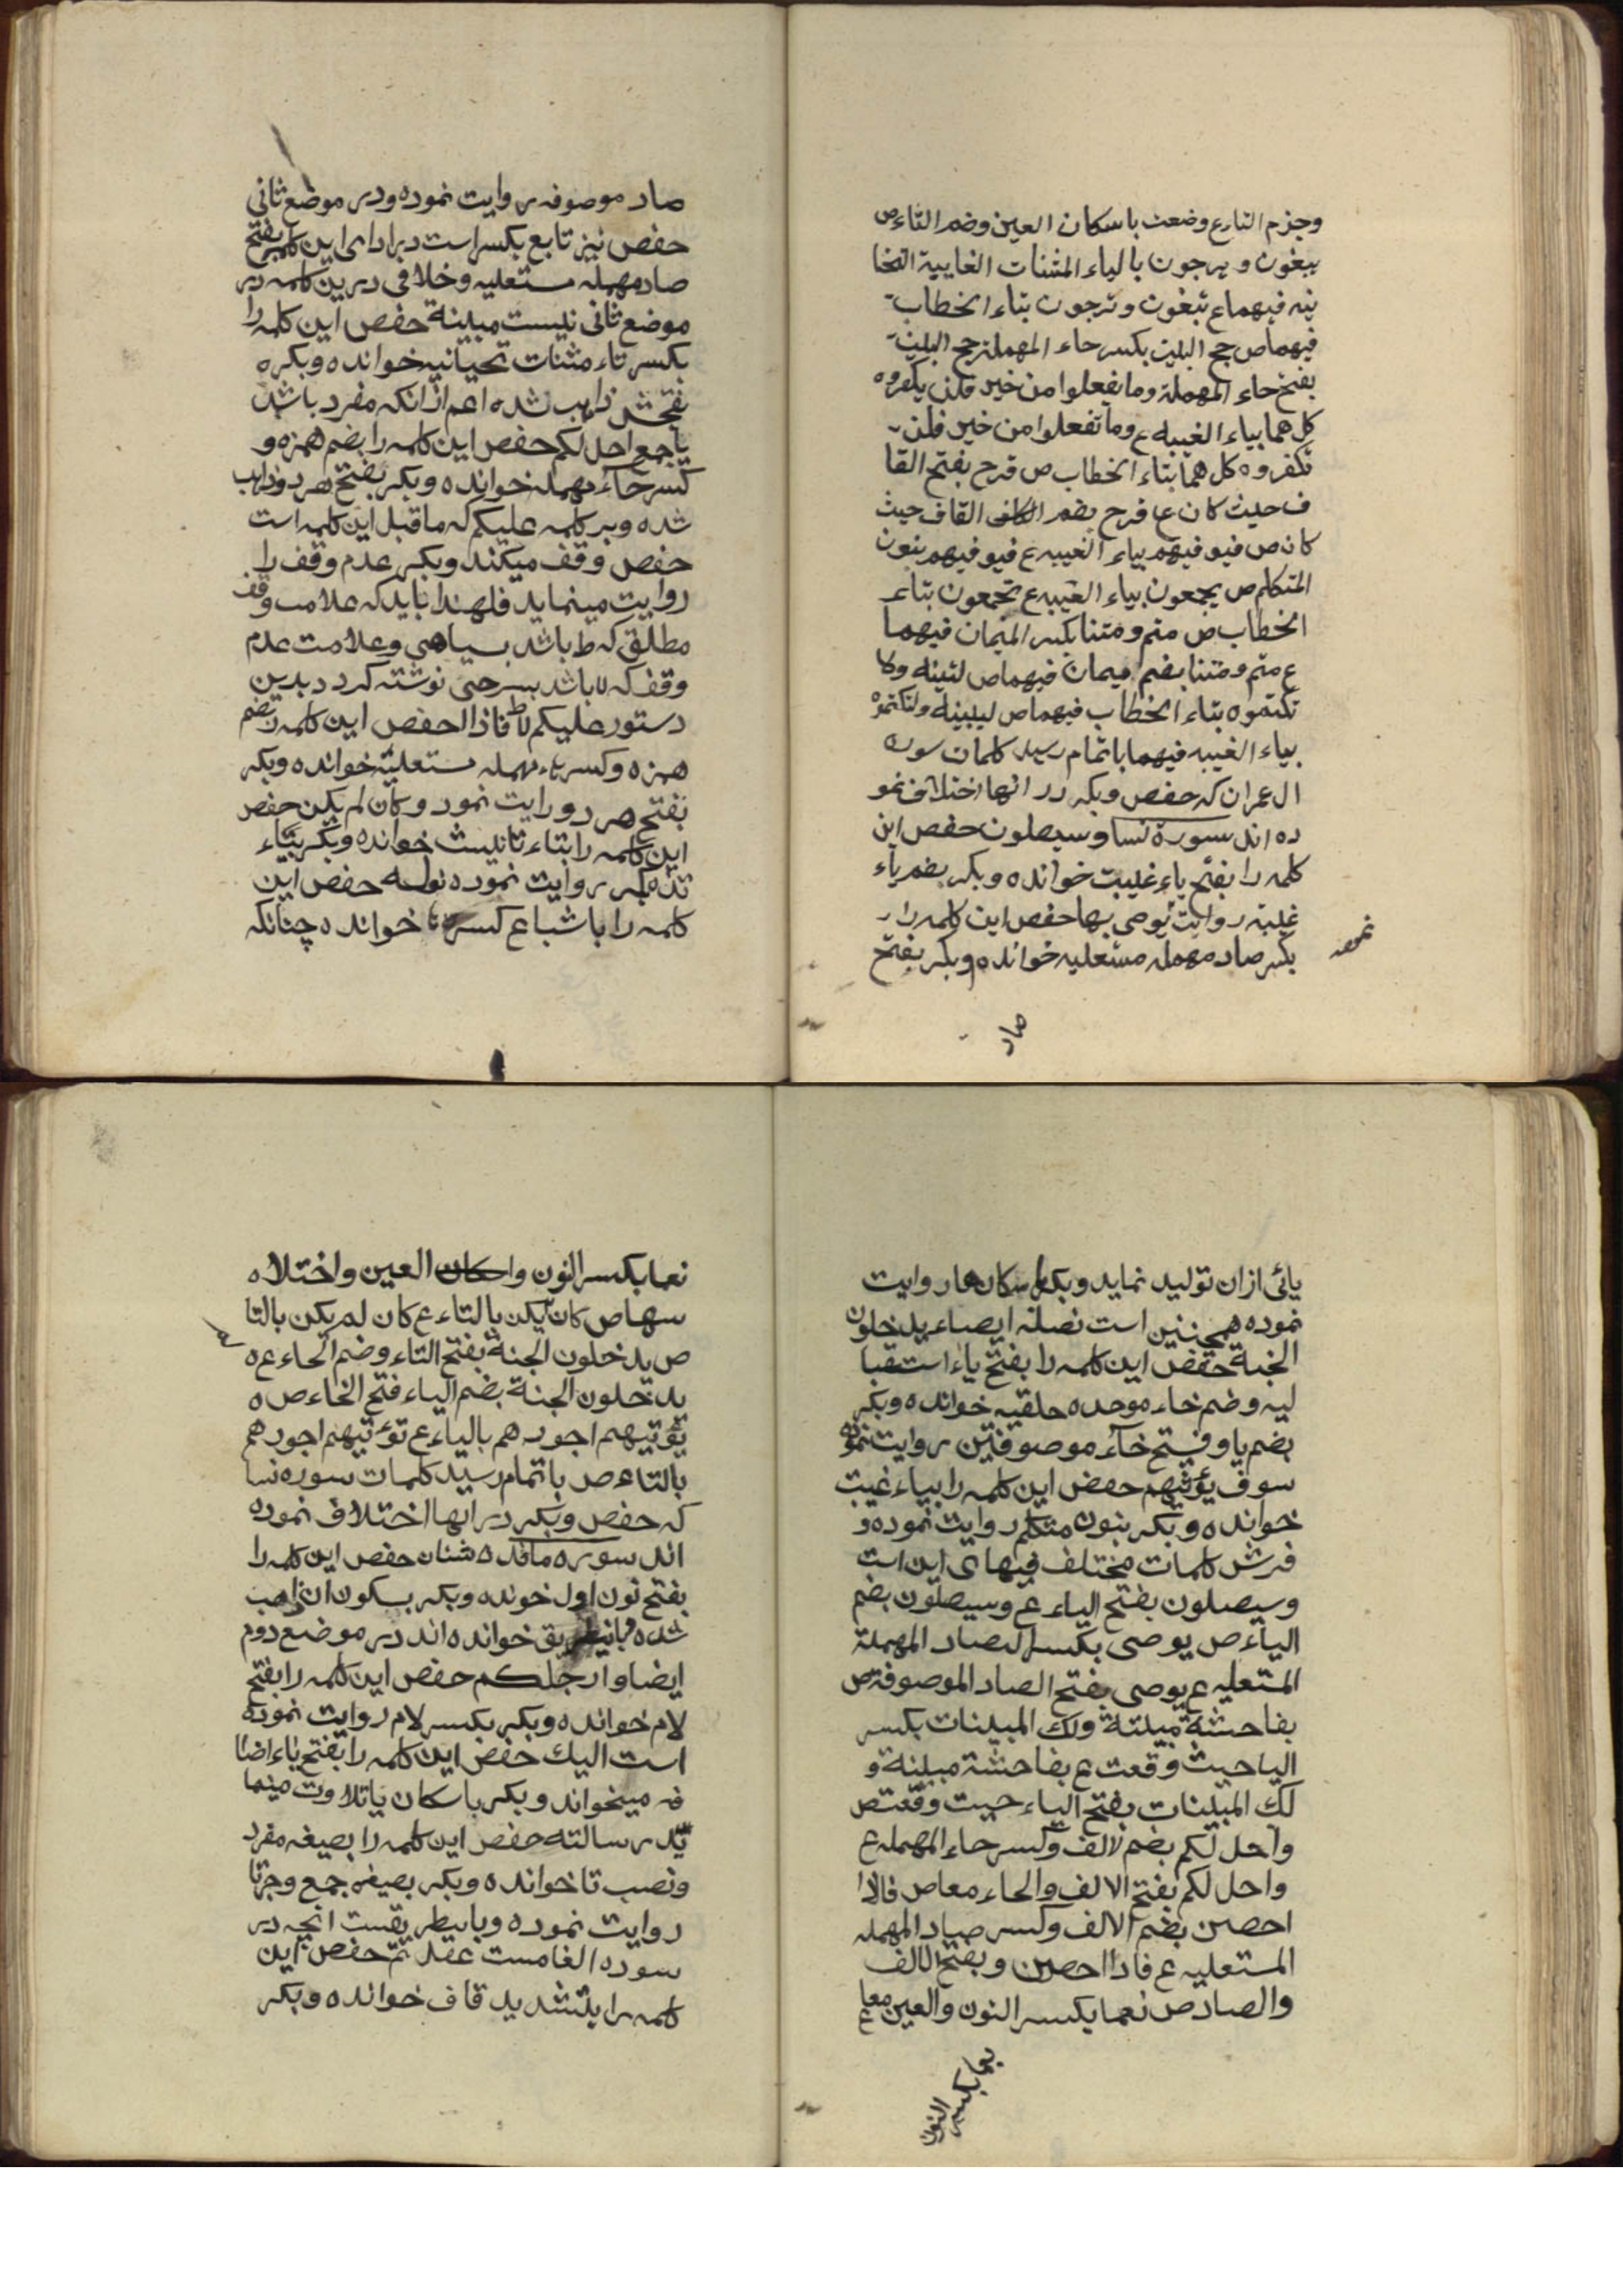 وجزم التارع وضعت باسكان العين وضم التاء ص
يبغون و يرجون بالياء المثنات الغايبية التحتا
نيه فيهماع تبغون وترجون بتاء الخطاب
فيهماص حج البيت بكسر حاء المهملة حج البيت
بفتح حاء المهملة وما يفعلوا من خير فلن يكفروه
كل هما بياء الغيبه ع وما تفعلوا من خير فلن
تكفروه كل هما بتاء الخطاب ص قرح بفتح القا
ف حيث كان ع قرح بضم القاف حيث
كان ص فيو فيهم بياء الغيبه ع فيو فيهم بنون
المتكلم ص يجمعون بياء الغيبه ع تجمعون بتاء
الخطاب ص متم ومتنا بكسر الميمان فيهما
ع متم ومتنا بضم ميمان فيهماص لتبينه ولا
تكتموه بتاء الخطاب فيهماص ليبينه
بياء الغيبه فيهما باتمام رسيد كلمات سوره
ال عمران كه حفص وبكر در انها اختلاف نمو
ده اند سورة نسا وسيصلون حفص اين
كلمه را بفتح ياء غيبت خوانده و بكر بضم ياء
غيبة روايت يوصى بها حفص اين كلمه را
بكسر صاد مهمله مستعليه خوانده وبكر بفتح
صاد
صاد موصوفه روايت نموده ودر موضع ثانى
حفص نيز تابع بكسر است اين كلمه بفتح
صاد مهمله مستعليه وخلافى درين كلمه در
موضع ثانى نيست مبينة حفص اين كلمه را
بكسر تاء مثنات تحتيانيه خوانده وبكره
بفتحش ذاهب شده اعم ازانكه مفرد باشد
يا جمع احل لكم حفص اين كلمه را بضم همزه و
كسر حاء مهمله خوانده وبكر بفتح هر دو ذاهب
شده وبر كلمه عليكم كه ماقبل اين كلمه است
حفص وقف ميكند وبكر عدم وقف را
روايت مينمايد فلهذا بايد كه علامت وقف
مطلق كه ط باشد بسياهى وعلامت عدم
وقف كه لا باشد بسرخى نوشته كردد بدين
دستور عليكم لاط فاذا الحفص اين كلمه را بضم
همزه وكسر مهمله مستعليه خوانده وبكر
بفتح هر دو روايت نمود وكان لم يكن حفص
اين كلمه را بتاء تانيث خوانده وبكر بتاء
تذكير روايت نموده نوله حفص اين
كلمه را باشباع كسر ها خوانده چنانكه
يائى ازان توليد نمايد وبكر اسكان ها روايت
نموده همچنين است نصله ايصاء يدخلون
الجنة حفص اين كلمه را بفتح ياء استقبا
ليه وضم خاء موحده حلقيه خوانده وبكر
بضم يا وفتح خاء موصوفتين روايت نموده
سوف يؤتيهم حفص اين كلمه را بياء غيبت
خوانده و بكر بنون متكلم روايت نموده و
فرش كلمات مختلف فيهاى اين است
وسيصلون بفتح الياء ع وسيصلون بضم
الياء ص يوصى بكسر الصاد المهملة
المتعليه ع يوصى بفتح الصاد الموصوفة ص
بفاحشة مبينة ولك المبينات بكسر
الياحيث وقعت ع بفاحشة مبينة و
لك المبينات بفتح الياء حيت وقعت ص
واحل لكم بضم لالف وكسر حاء المهمله ع
واحل لكم بفتح الالف والحاء معا ص فاذا
احصن بضم الالف وكسر صاد المهمله
المستعليه ع فاذا احصن و بفتح الالف
والصاد ص نعما بكسر النون والعين معا ع
نعما بكسر النون
نعما بكسر النون واسكان العين واختلاه
سهاص كان تكن بالتاء ع كان لم يكن بالتا
ص يدخلون الجنة بفتح التاء وضم الحاء ع ه
يدخلون الجنة بضم الياء فتح الخاء ص ه
يؤتيهم اجورهم بالياء ع تؤتيهم اجورهم
بالتاء ص باتمام رسيد كلمات سوره نسا
كه حفص وبكر در انها اختلاف نموده
اند سوره مائده شنان حفص اين كلمه را
بفتح نون اول خونده وبكر بسكون ان ذاهب
شده خوانده اند در موضع دوم
ايضا وارجلكم حفص اين كلمه را بفتح
لام خوانده وبكر بكسر لام روايت نموده
است اليك حفص اين كلمه را بفتح ياء اضا
فه ميخواند وبكر باسكان يا تلاوت مينما
يد رسالته حفص اين كلمه را بصيغه مفرد
ونصب تا خوانده وبكر بصيغه جمع وجرتا
روايت نموده وباينطريقست انچه در
سوره الغامست عقد تم حفص اين
كلمه را بتشديد قاف خوانده وبكر